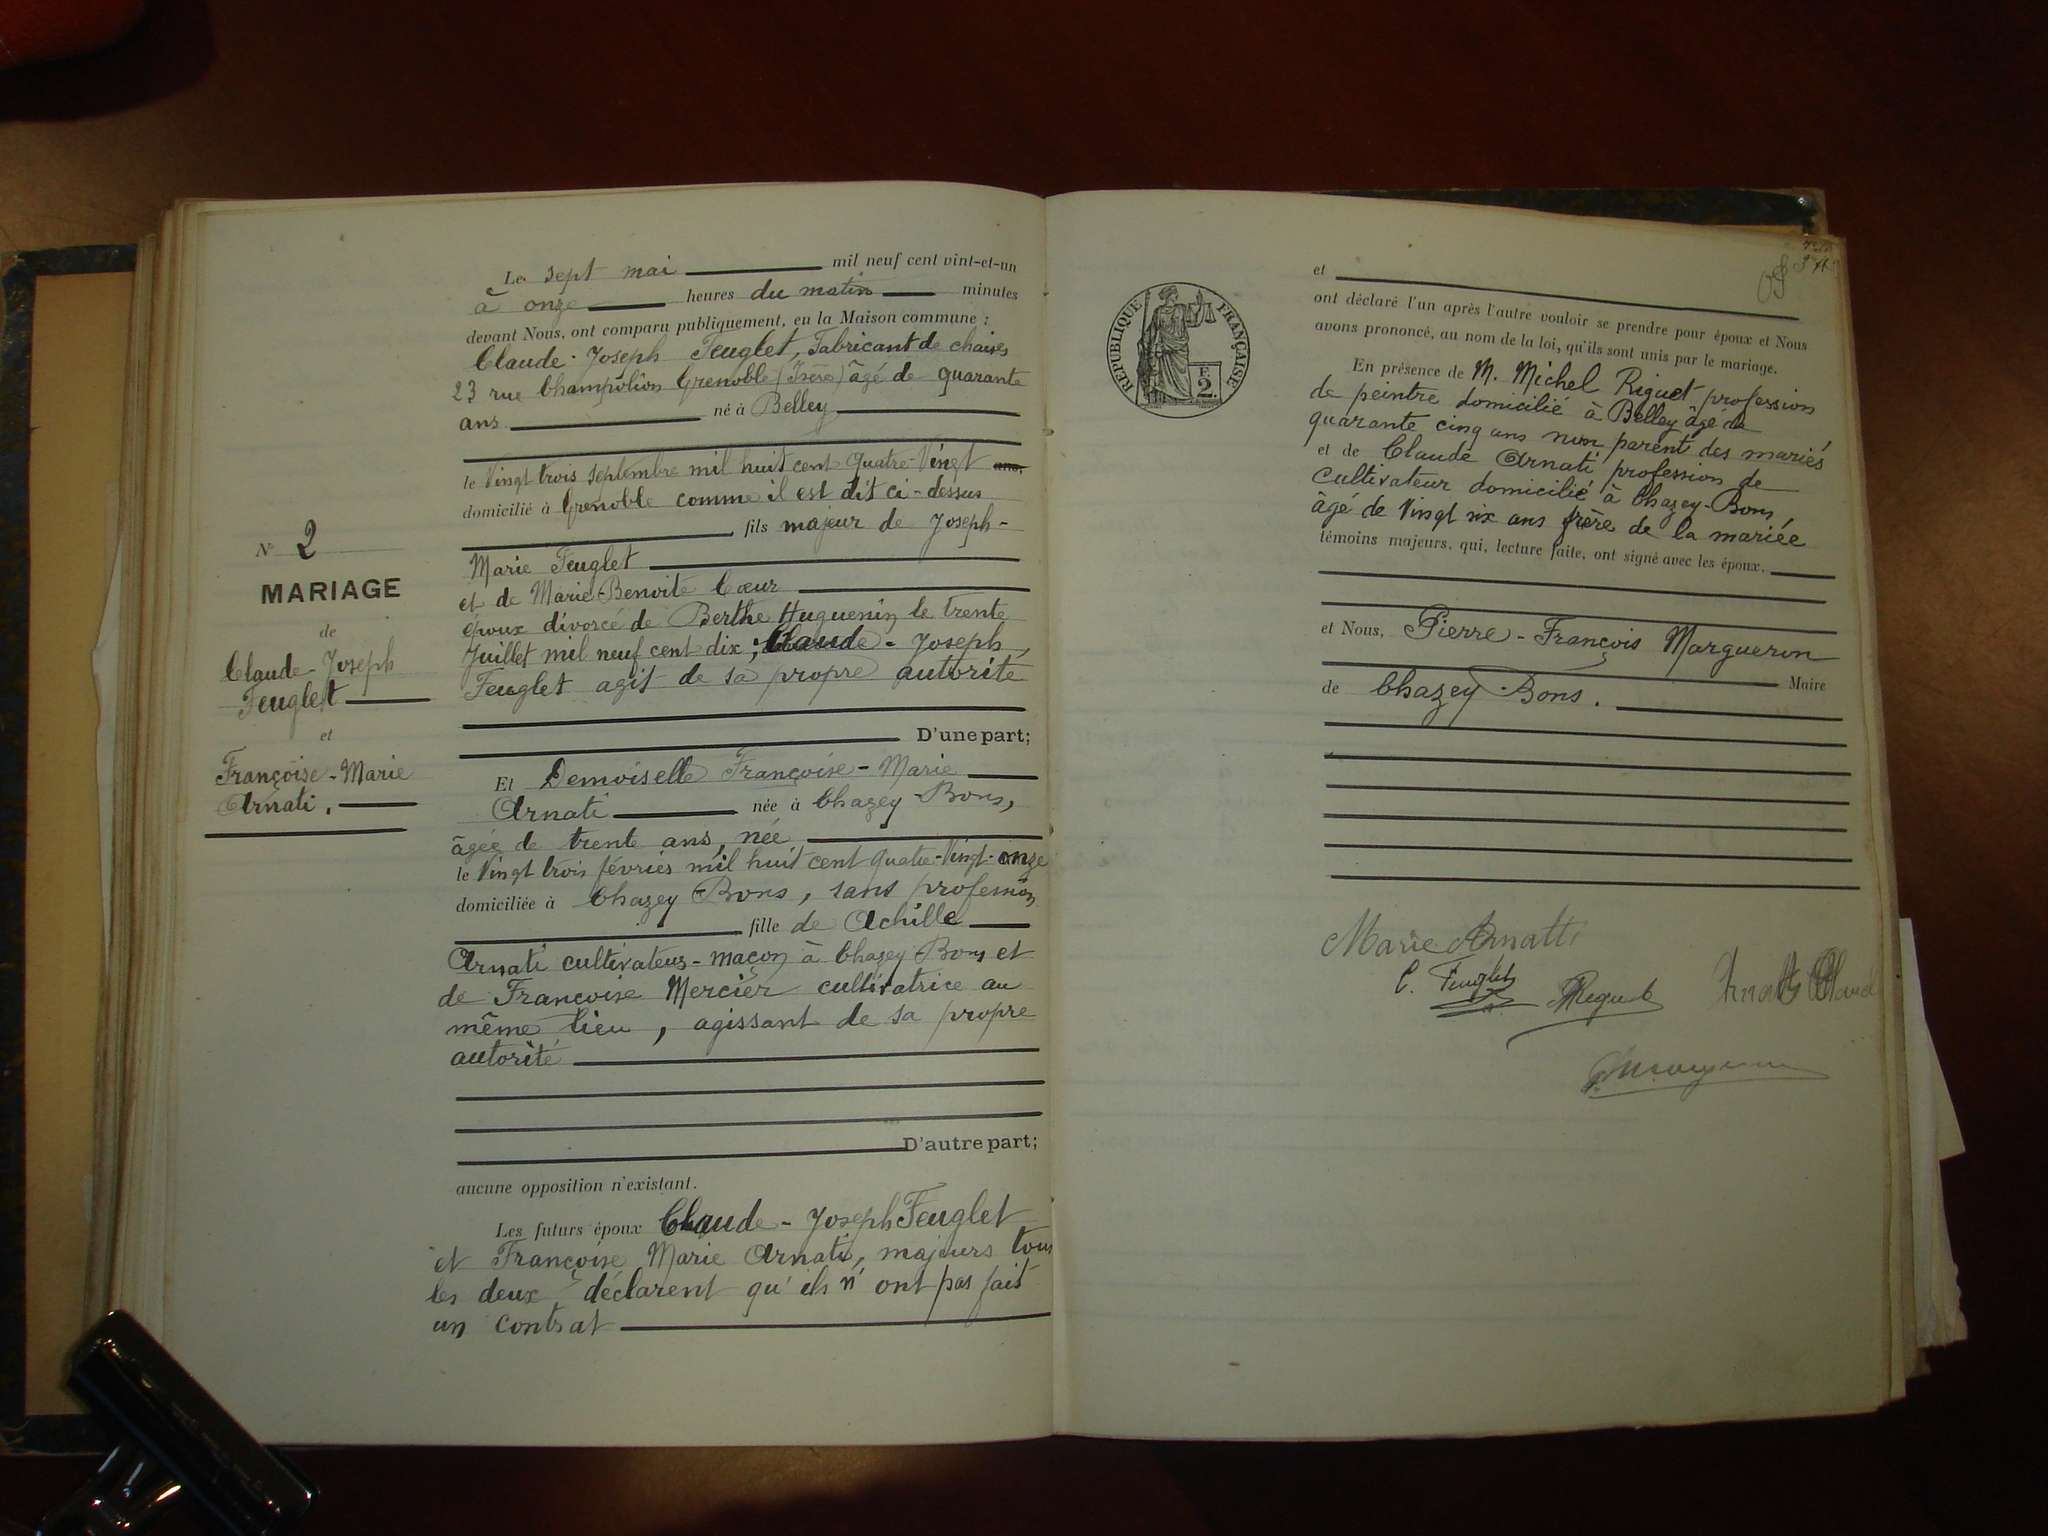 N° 2
MARIAGE
de
Claude-Joseph
Feuglet
et
Françoise-Marie
Arnati.
Le sept mai mil neuf cent vint-et-un
à onze heures du matin minutes
devant Nous, ont comparu publiquement, en la Maison commune :
Claude-Joseph Feuglet, Fabricant de chaises
23 rue Champolion Grenoble (Isère) âgé de quarante
ans né à Belley
le Vingt trois septembre mil huit cent quatre-Vingt ans,
domicilié à Grenoble comme il est dit ci-dessus
fils majeur de Joseph-
Marie Feuglet
et de Marie-Benoite Cœur
époux divorcé de Berthe Huguenin le trente
Juillet mil neuf cent dix ; Claude-Joseph
Feuglet agit de sa propre autorité
D'une part;
Et Demoiselle Françoise-Marie
Arnati née à Chazey-Bons,
âgée de trente ans, née
le Vingt trois février mil huit cent quatre-Vingt-onze
domiciliée à Chazey-Bons, sans profession
fille de Achille
Arnati cultivateur-maçon à Chazey Bons et
de Françoise Mercier cultivatrice au
même lieu, agissant de sa propre
autorité
D'autre part;
aucune opposition n'existant.
Les futurs époux Claude-Joseph Feuglet
et Françoise Marie Arnati, majeurs tous
les deux déclarent qu'ils n'ont pas fait
un contrat
REPUBLIQUE FRANÇAISE
F.
2.
et
ont déclaré l'un après l'autre vouloir se prendre pour époux et Nous
avons prononcé, au nom de la loi, qu'ils sont unis par le mariage.
En présence de M. Michel Riguet profession
de peintre domicilié à Belley âgé de
quarante cinq ans non parent des mariés
et de Claude Arnati profession de
cultivateur domicilié à Chazey-Bons,
âgé de Vingt six ans frère de la mariée
témoins majeurs, qui, lecture faite, ont signé avec les époux.
et Nous, Pierre-François Margueron
Maire
de Chazey-Bons.
Marie Arnatti
C. Feuglet
Riguet
Arnatti Claude